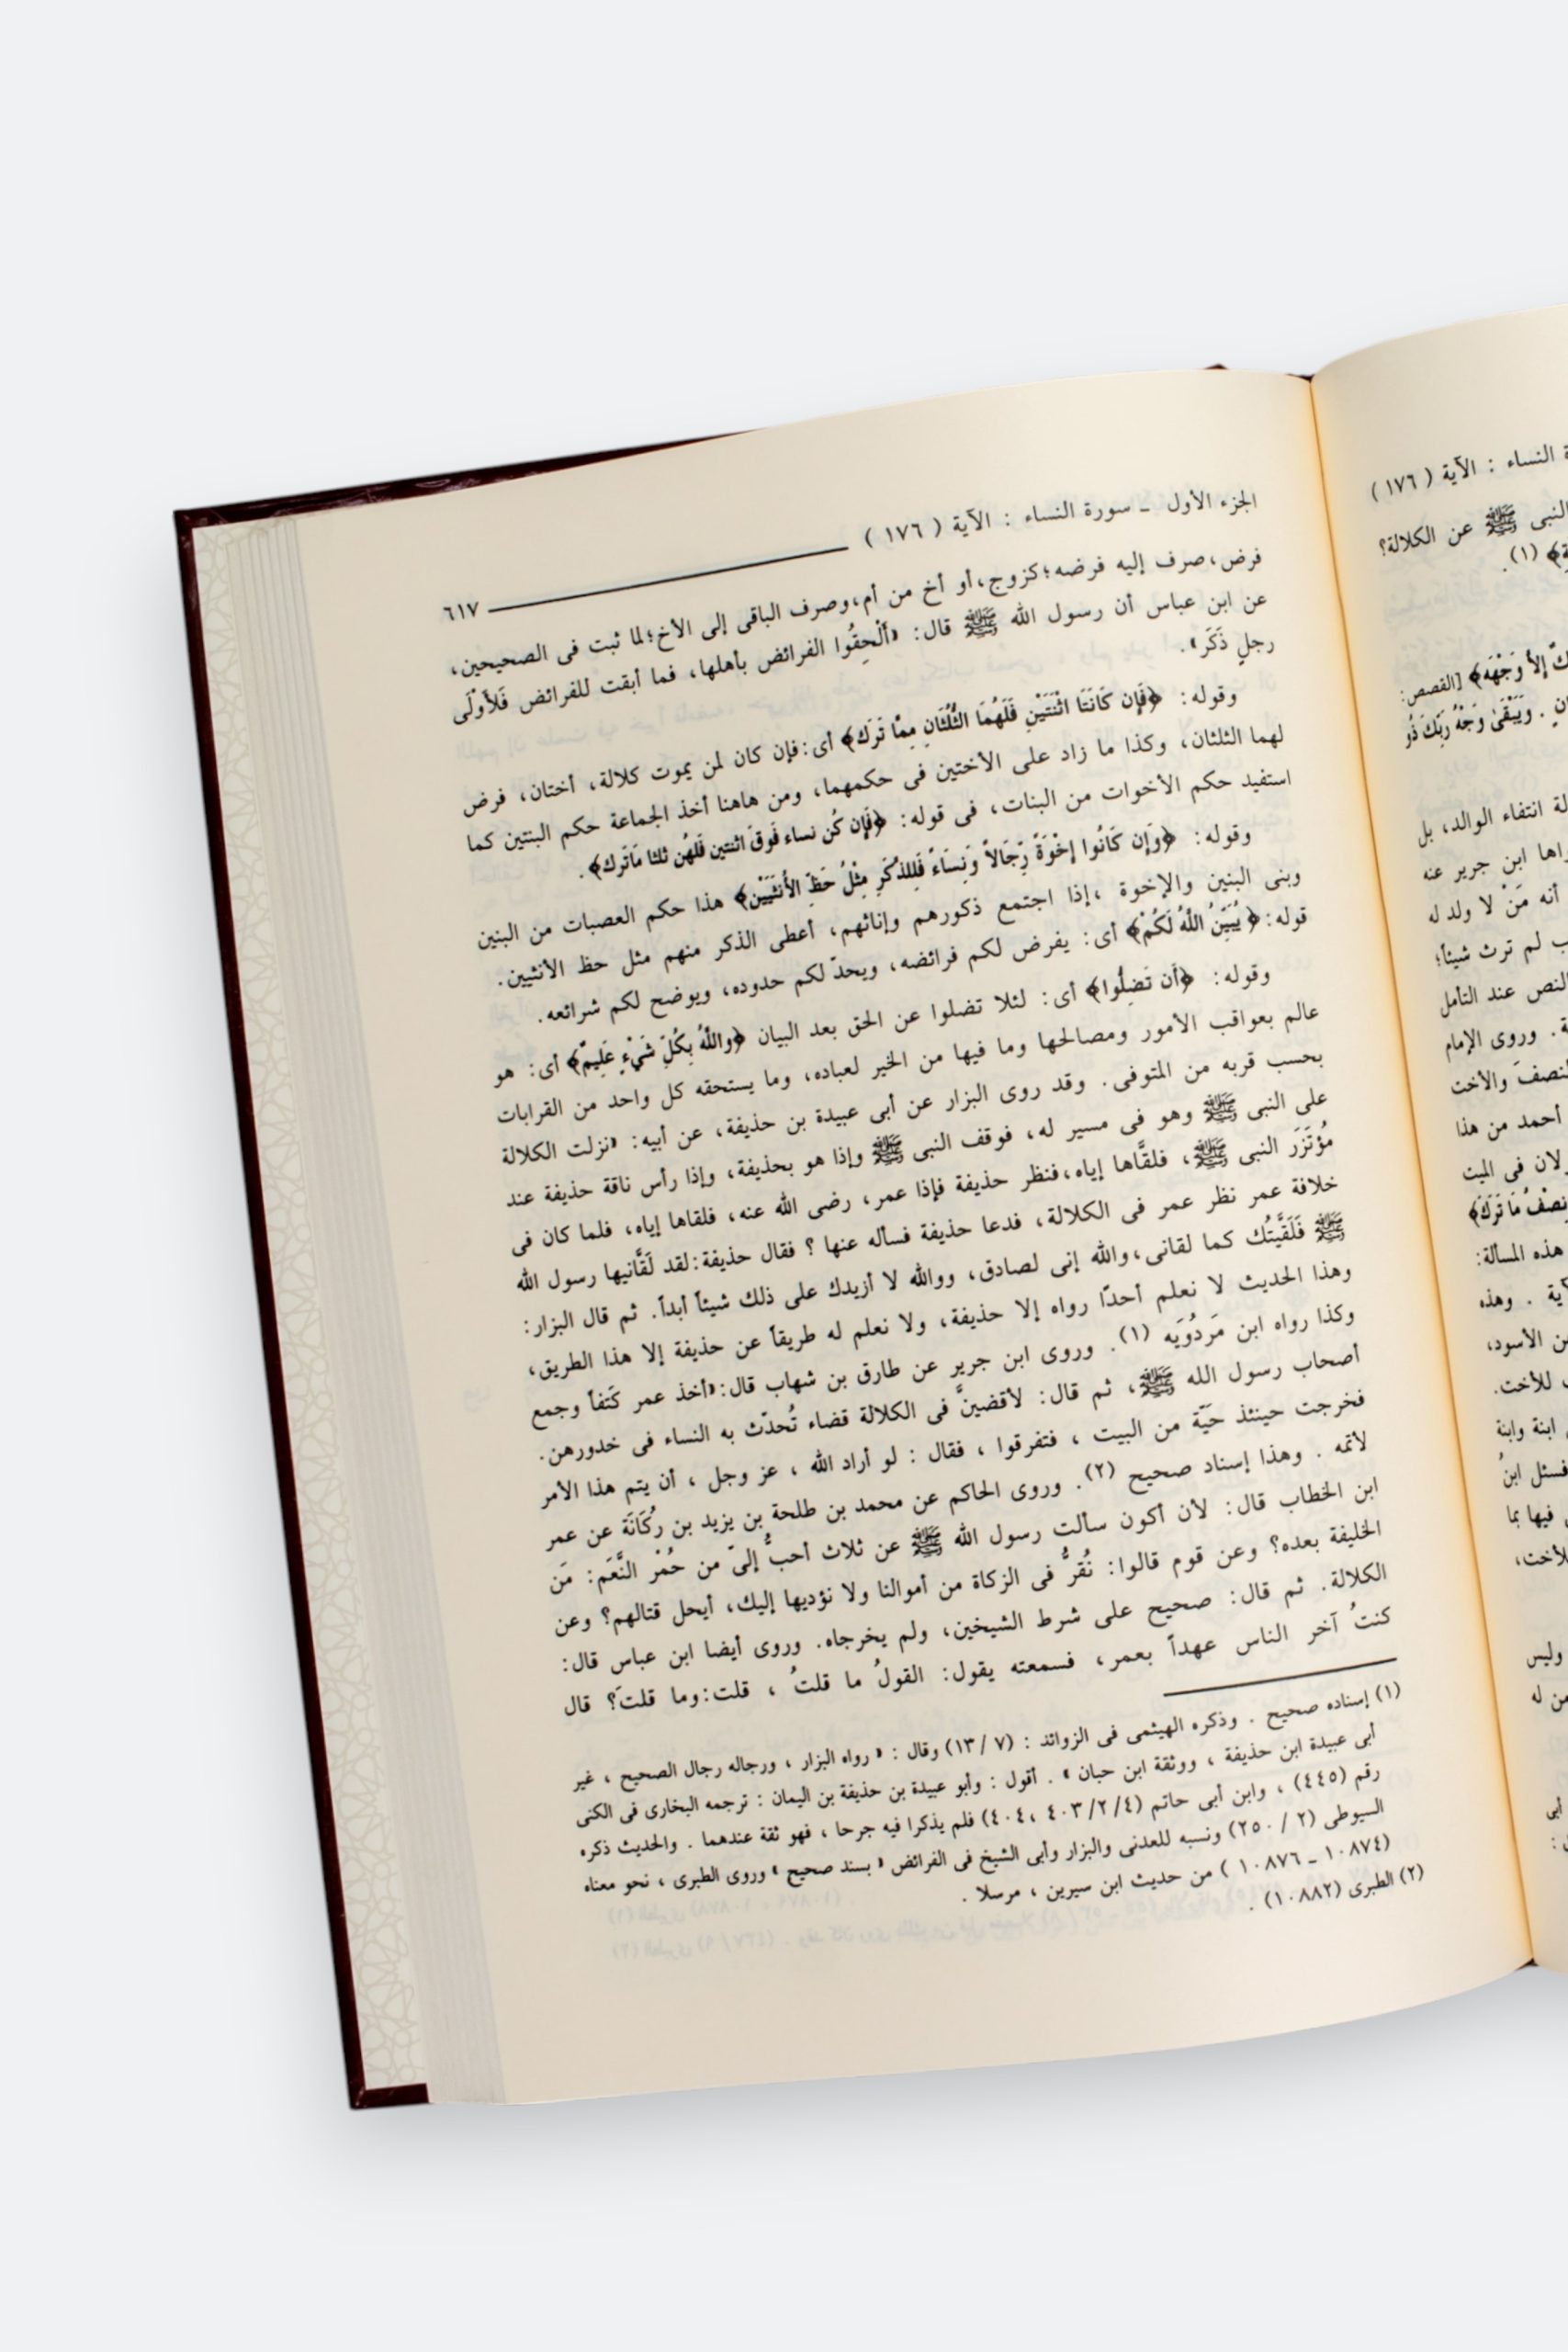 ة النساء : الآية ( ١٧٦ )
النبى ﷺ عن الكلالة؟
(١).
إِلاَّ وَجْهَه﴾ [القصص:
. وَيَبْقَىٰ وَجْهُ رَبِّكَ ذُو
انتفاء الوالد، بل
ابن جرير عنه
أنه مَنْ لا ولد له
لم ترث شيئاً؛
النص عند التأمل
. وروى الإمام
النصفَ والأخت
أحمد من هذا
فى الميت
نِصْفُ مَا تَرَكَ﴾
هذه المسألة:
. وهذه
الأسود،
للأخت.
ابنة وابنة
فسئل ابنُ
فيها بما
وليس
من له
أبى
الجزء الأول ـ سورة النساء : الآية ( ١٧٦ ) ٦١٧
فرض،صرف إليه فرضه؛كزوج،أو أخ من أم،وصرف الباقى إلى الأخ؛لما ثبت فى الصحيحين،
عن ابن عباس أن رسول الله ﷺ قال: «أَلْحِقُوا الفرائض بأهلها، فما أبقت للفرائض فَلأَوْلَى
رجلٍ ذَكَر».
وقوله: ﴿فَإِن كَانَتَا اثْنَتَيْنِ فَلَهُمَا الثُّلُثَانِ مِمَّا تَرَك﴾ أى:فإن كان لمن يموت كلالة، أختان، فرض
لهما الثلثان، وكذا ما زاد على الأختين فى حكمهما، ومن هاهنا أخذ الجماعة حكم البنتين كما
استفيد حكم الأخوات من البنات، فى قوله: ﴿فَإِن كُن نساء فَوقَ اثنتين فَلهُن ثلثا مَاتَرك﴾ .
وقوله: ﴿وَإِن كَانُوا إِخْوَةً رِّجَالاً وَنِسَاءً فَلِلذَّكَرِ مِثْلُ حَظِّ الأُنثَيَيْن﴾ هذا حكم العصبات من البنين
وبنى البنين والإخوة ،إذا اجتمع ذكورهم وإناثهم، أعطى الذكر منهم مثل حظ الأنثيين.
قوله:﴿ يُبَيِّنُ اللَّهُ لَكُمْ﴾ أى: يفرض لكم فرائضه، ويحدّ لكم حدوده، ويوضح لكم شرائعه.
وقوله: ﴿أَن تَضِلُّوا﴾ أى: لئلا تضلوا عن الحق بعد البيان ﴿واللَّهُ بِكُلِّ شَيْءٍ عَلِيمٌ﴾ أى: هو
عالم بعواقب الأمور ومصالحها وما فيها من الخير لعباده، وما يستحقه كل واحد من القرابات
بحسب قربه من المتوفى. وقد روى البزار عن أبى عبيدة بن حذيفة، عن أبيه: «نزلت الكلالة
على النبى ﷺ وهو فى مسير له، فوقف النبى ﷺ وإذا هو بحذيفة، وإذا رأس ناقة حذيفة عند
مُؤتَزَر النبى ﷺ، فلقَّاها إياه،فنظر حذيفة فإذا عمر، رضى الله عنه، فلقاها إياه، فلما كان فى
خلافة عمر نظر عمر فى الكلالة، فدعا حذيفة فسأله عنها ؟ فقال حذيفة:لقد لَقَّانيها رسول الله
ﷺ فَلَقَّيتُك كما لقانى،والله إنى لصادق، ووالله لا أزيدك على ذلك شيئاً أبداً. ثم قال البزار:
وهذا الحديث لا نعلم أحدًا رواه إلا حذيفة، ولا نعلم له طريقاً عن حذيفة إلا هذا الطريق،
وكذا رواه ابن مَردُوَيَه (١). وروى ابن جرير عن طارق بن شهاب قال:«أخذ عمر كَتفاً وجمع
أصحاب رسول الله ﷺ، ثم قال: لأقضينَّ فى الكلالة قضاء تُحدّث به النساء فى خدورهن.
فخرجت حينئذ حَيّة من البيت ، فتفرقوا ، فقال : لو أراد الله ، عز وجل ، أن يتم هذا الأمر
لأتمه . وهذا إسناد صحيح (٢). وروى الحاكم عن محمد بن طلحة بن يزيد بن رُكَانَة عن عمر
ابن الخطاب قال: لأن أكون سألت رسول الله ﷺ عن ثلاث أحبُّ إلىّ من حُمْر النَّعَم: مَن
الخليفة بعده؟ وعن قوم قالوا: نُقرُّ فى الزكاة من أموالنا ولا نؤديها إليك، أيحل قتالهم؟ وعن
الكلالة. ثم قال: صحيح على شرط الشيخين، ولم يخرجاه. وروى أيضا ابن عباس قال:
كنتُ آخر الناس عهداً بعمر، فسمعته يقول: القولُ ما قلتُ ، قلت:وما قلتَ؟ قال
(١) إسناده صحيح . وذكره الهيثمى فى الزوائد : (٧ /١٣) وقال : « رواه البزار ، ورجاله رجال الصحيح ، غير
أبى عبيدة ابن حذيفة ، ووثقة ابن حبان » . أقول : وأبو عبيدة بن حذيفة بن اليمان : ترجمه البخارى فى الكنى
رقم (٤٤٥) ، وابن أبى حاتم (٤ /٢ /٤٠٣ ،٤٠٤) فلم يذكرا فيه جرحا ، فهو ثقة عندهما . والحديث ذكره
السيوطى (٢ / ٢٥٠) ونسبه للعدنى والبزار وأبى الشيخ فى الفرائض « بسند صحيح » وروى الطبرى ، نحو معناه
(١٠٨٧٤ ـ ١٠٨٧٦ ) من حديث ابن سيرين ، مرسلا .
(٢) الطبرى (١٠٨٨٢) .